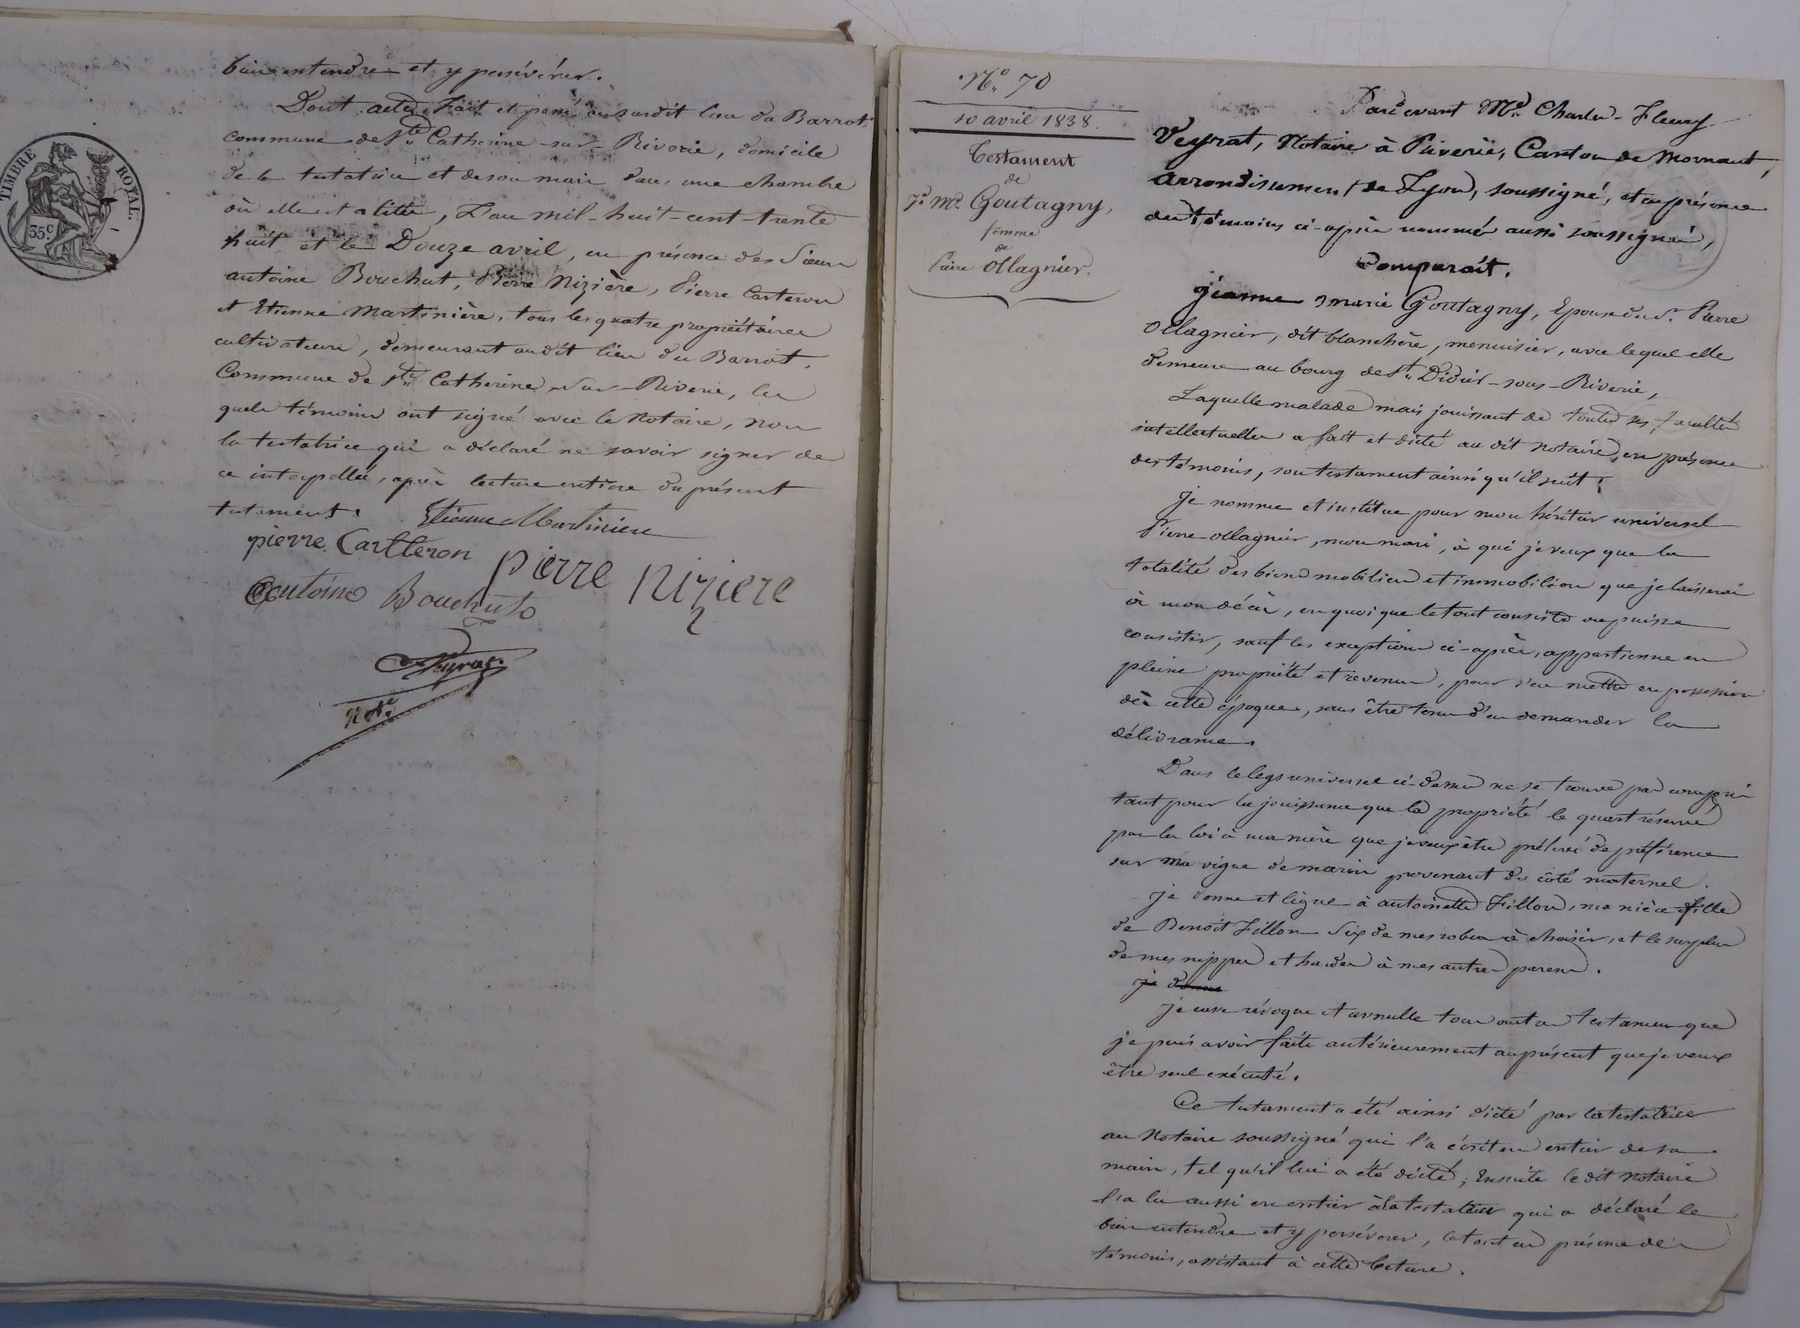 bien entendre et y persévérer.
Dont acte, Fait et passé au susdit lieu du Barrot,
commune de Ste Catherine-sur-Riverie, domicile
de la testatrice et de son mari dans une chambre
où elle est alitée, L'an mil-huit-cent-trente
huit et le Douze avril, en présence des Sieurs
antoine Bouchut, Pierre Nizière, Pierre Carteron
et Etienne Martinière, tous les quatre propriétaires
cultivateurs, demeurant audit lieu du Barrot,
Commune de Ste Catherine sur-Riverie, les
quels témoins ont signé avec le Notaire, non
la testatrice qui a déclaré ne savoir signer de
ce interpellée, après lecture entière du présent
testament.
Etienne Martiniere
pierre Cartteron
pierre Niziere
Antoine Bouchut
Veyrat
Notre
TIMBRE ROYAL.
35c
No. 70
10 avril 1838.
Testament
de
Je. Me. Goutagny,
femme
de
Pierre Ollagnier.
Pardevant Me. Charles-Fleury
Veyrat, Notaire à Riverie, Canton de Mornant,
arrondissement de Lyon, soussigné, et en présence
des témoins ci-après nommés aussi soussignés,
Comparait.
jeanne marie Goutagny, Epouse du Sr. Pierre
Ollagnier, dit blanchère, menuisier, avec lequel elle
demeure au bourg de St. Didier-sous-Riverie,
Laquelle malade mais jouissant de toutes ses facultés
intellectuelles a fait et dicté au dit Notaire, en présence
des témoins, son testament ainsi qu'il suit:
je nomme et institue pour mon héritier universel
Pierre Ollagnier, mon mari, à qui je veux que la
totalité des biens mobiliers et immobiliers que je laisserai
à mon décès, en quoi que le tout consiste ou puisse
consister, sauf les exceptions ci-après, appartienne en
pleine propriété et revenus, pour s'en mettre en possession
dès cette époque, sans être tenu d'en demander la
délivrance.
Dans le legs universel ci-dessus ne se trouve pas compris
tant pour la jouissance que la propriété le quart réservé
par la loi à ma mère que je veux être prélevé de préférence
sur ma vigne de marin provenant du côté maternel.
je donne et lègue à antoinette Fillon, ma nièce fille
de Benoit Fillon Six de mes robes à choisir, et le surplus
de mes nippes et hardes à mes autres parens.
je donne
je casse révoque et annulle tous autres testamens que
je puis avoir faits antérieurement au présent que je veux
être seul exécuté.
Ce testament a été ainsi dicté par la testatrice
au Notaire soussigné qui l'a écrit en entier de sa
main, tel qu'il lui a été dicté; Ensuite le dit Notaire
l'a lu aussi en entier à la testatrice qui a déclaré le
bien entendre et y persévérer, le tout en présence des
témoins, assistant à cette lecture.